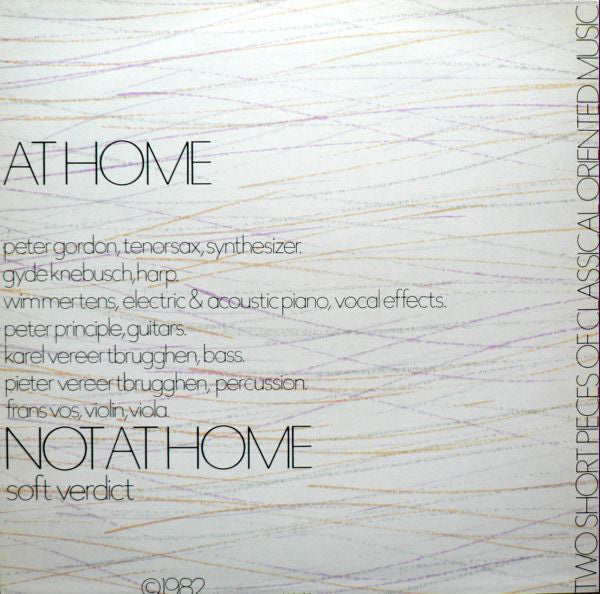 AT HOME
peter gordon, tenorsax, synthesizer.
gyde knebusch, harp.
wim mertens, electric & acoustic piano, vocal effects.
peter principle, guitars.
karel vereertbrugghen, bass.
pieter vereertbrugghen, percussion.
frans vos, violin, viola.
NOT AT HOME
soft verdict
©1982
TWO SHORT PIECES OF CLASSICAL ORIENTED MUSIC